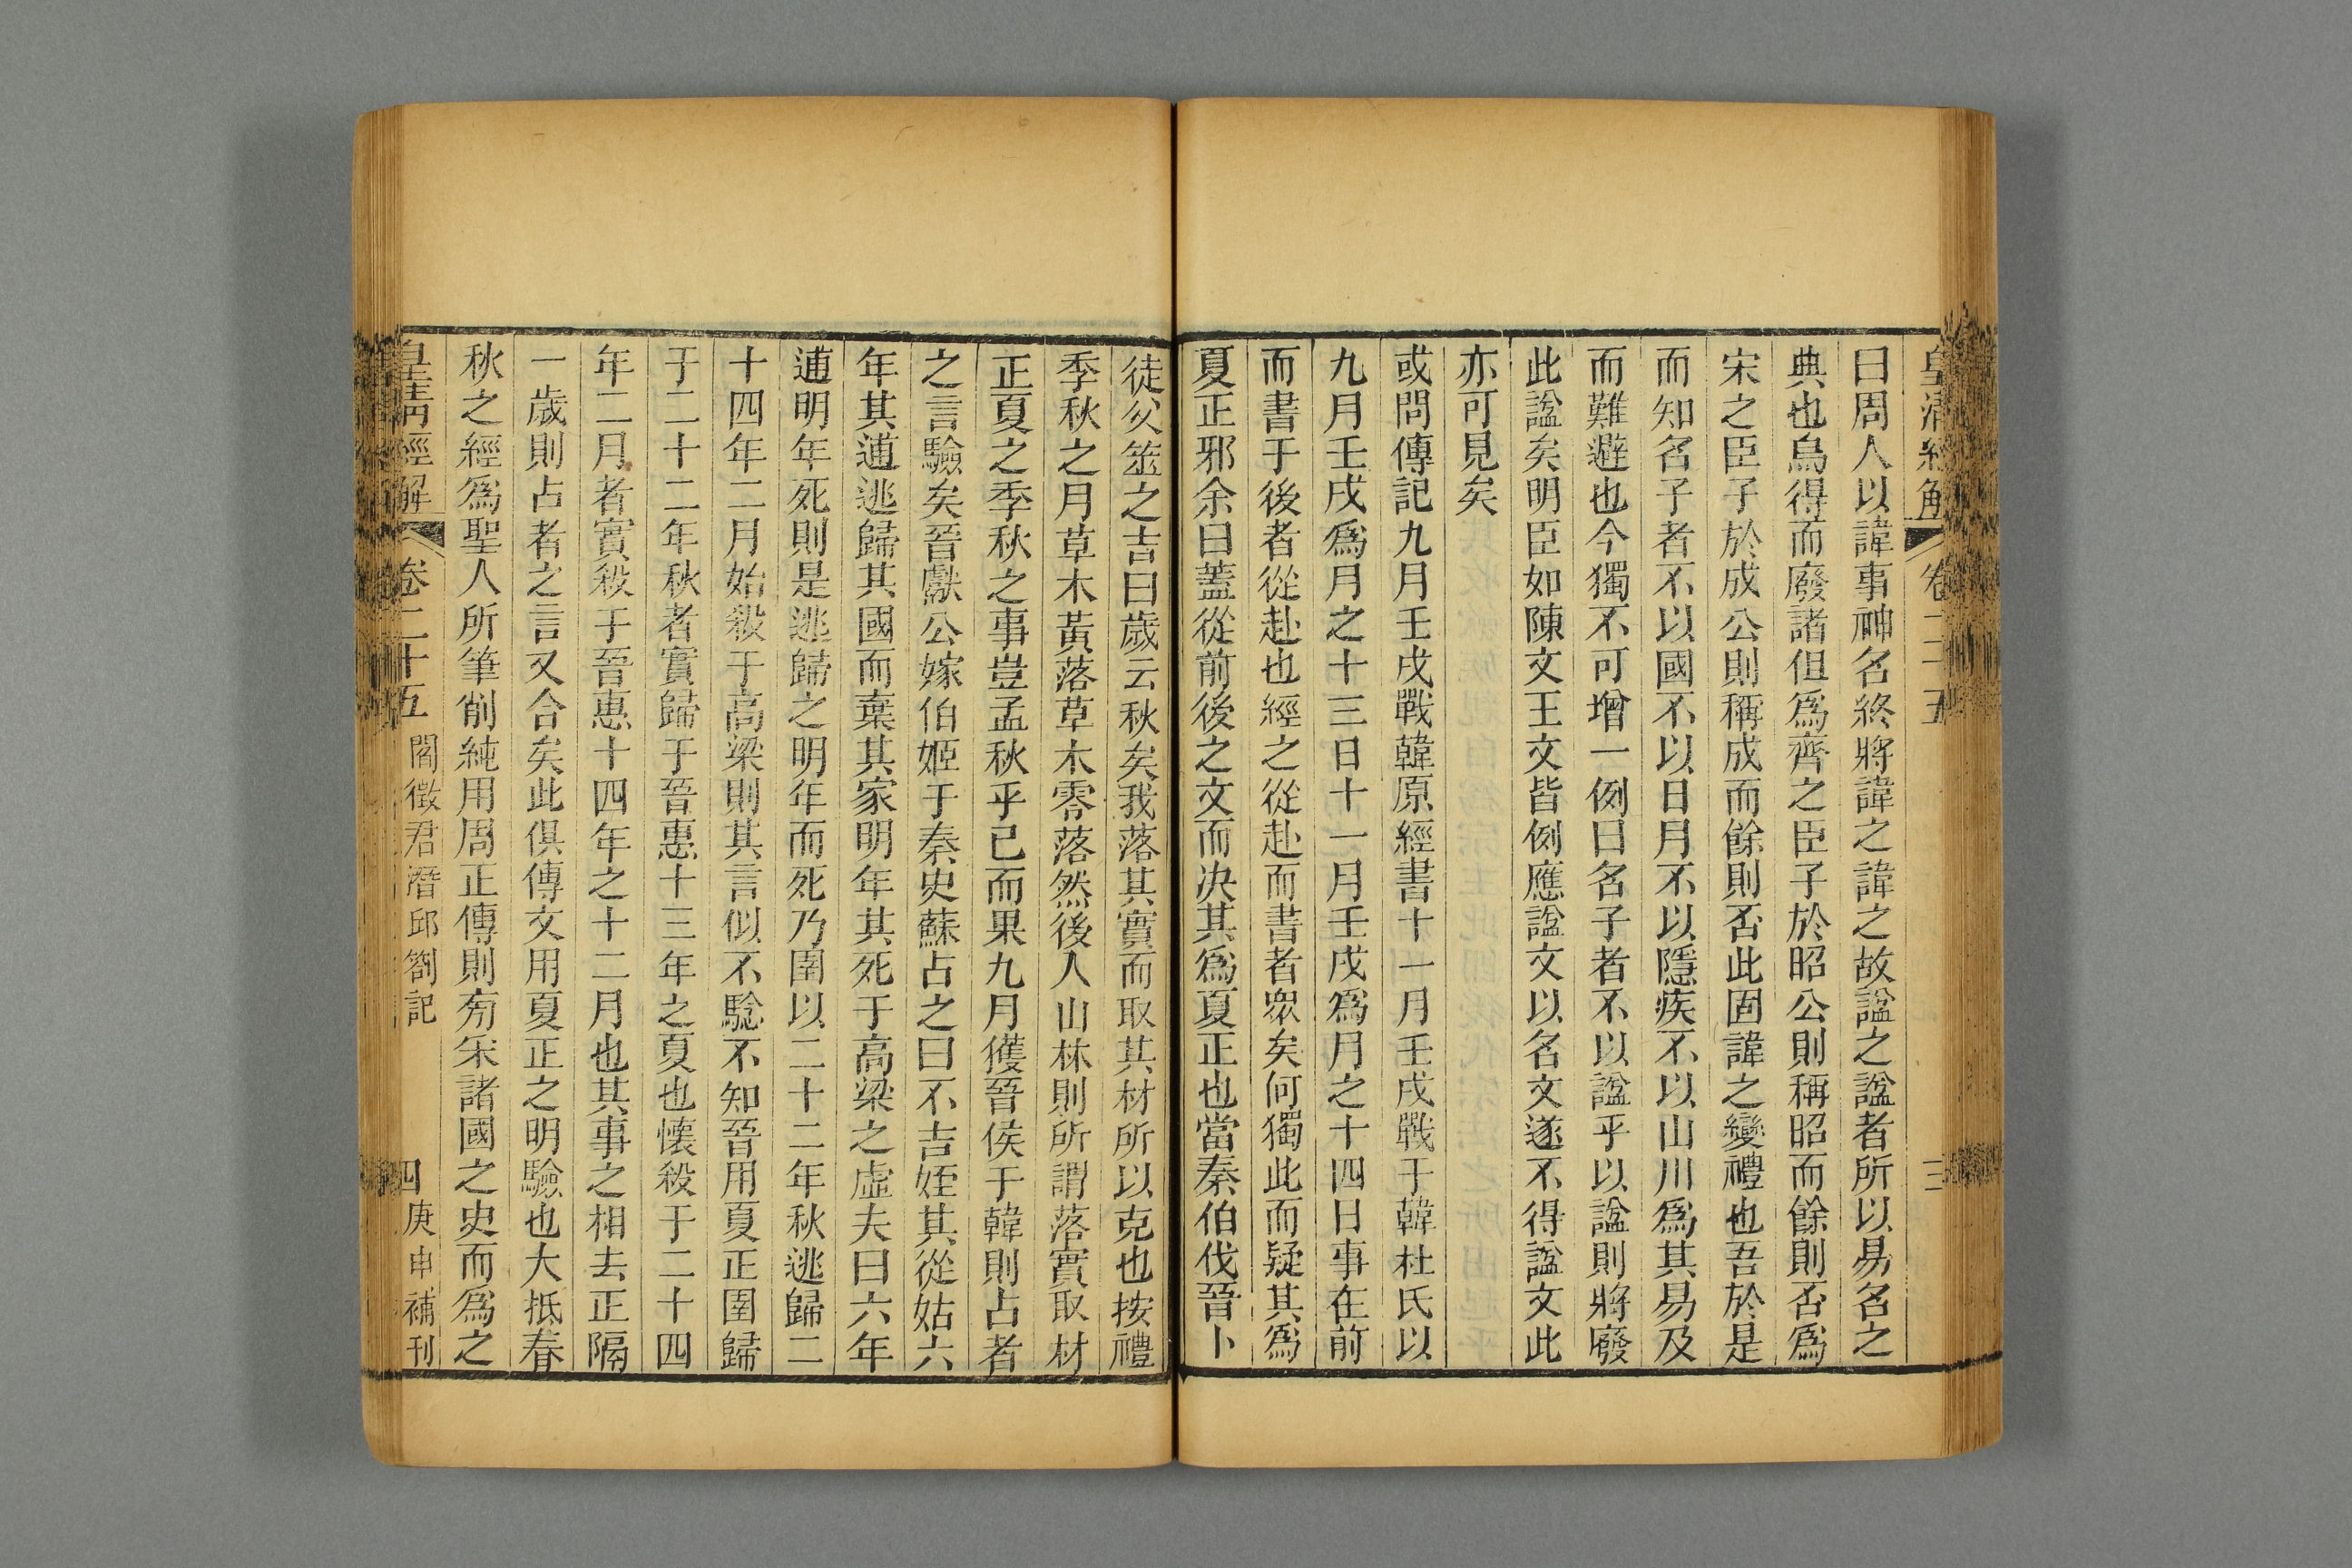 皇清經解 卷二十五 三
曰周人以諱事神名終將諱之諱之故諡之諡者所以易名之
典也烏得而廢諸但爲齊之臣子於昭公則稱昭而餘則否爲
宋之臣子於成公則稱成而餘則否此固諱之變禮也吾於是
而知名子者不以國不以日月不以隱疾不以山川爲其易及
而難避也今獨不可增一例曰名子者不以諡乎以諡則將廢
此諡矣明臣如陳文王文皆例應諡文以名文遂不得諡文此
亦可見矣
或問傳記九月壬戌戰韓原經書十一月壬戌戰于韓杜氏以
九月壬戌爲月之十三日十一月壬戌爲月之十四日事在前
而書于後者從赴也經之從赴而書者衆矣何獨此而疑其爲
夏正邪余曰蓋從前後之文而決其爲夏正也當秦伯伐晉卜
徒父筮之吉曰歲云秋矣我落其實而取其材所以克也按禮
季秋之月草木黃落草木零落然後人山林則所謂落實取材
正夏之季秋之事豈孟秋乎已而果九月獲晉侯于韓則占者
之言驗矣晉獻公嫁伯姬于秦史蘇占之曰不吉姪其從姑六
年其逋逃歸其國而棄其家明年其死于高梁之虛夫曰六年
逋明年死則是逃歸之明年而死乃圉以二十二年秋逃歸二
十四年二月始殺于高梁則其言似不騐不知晉用夏正圉歸
于二十二年秋者實歸于晉惠十三年之夏也懷殺于二十四
年二月者實殺于晉惠十四年之十二月也其事之相去正隔
一歲則占者之言又合矣此俱傳文用夏正之明驗也大抵春
秋之經爲聖人所筆削純用周正傳則旁采諸國之史而爲之
皇清經解 卷二十五 閻徵君潛邱劄記 四 庚申補刊